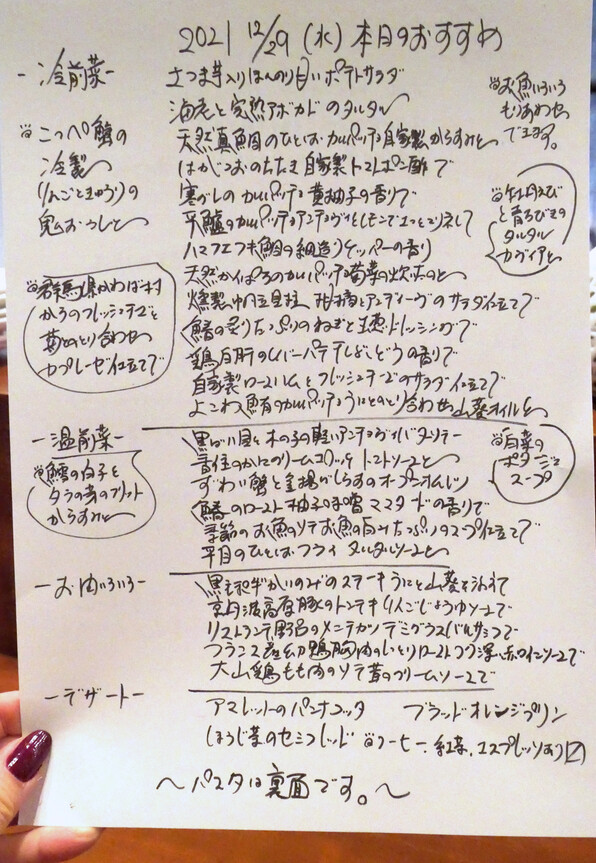 2021 12/29 (水) 本日のおすすめ
-冷前菜-
さつま芋入りほんのり甘いポテトサラダ
海老と完熟アボカドのタルタル
天然真鯛のひとしお カルパッチョ 自家製からすみと
はがつおのたたき 自家製トマトぽん酢で
寒ぶしのカルパッチョ 黄柚子の香りで
平鱸のカルパッチョ アンチョヴィとレモンで
ハマフエフキ鯛の 細造り ケッパーの香り
天然かんぱちのカルパッチョ
燻製 帆立貝柱 柑橘とアンディーヴのサラダ仕立て
鰆の炙り たっぷりのねぎと生姜ドレッシングで
鶏白肝のレバーパテ 干しぶどうの香りで
自家製ロースハムとフレッシュチーズのサラダ仕立て
よこわ鮪のカルパッチョ うにとのとり合わせ 山葵オイルと
お魚いろいろ
もりあわせ
できます。
こっぺ蟹の
冷製
りんごときゅうりの
鬼おろしと
牡丹えび
と 甘えびの
タルタル
カヴィアと
群馬県かわば村
からのフレッシュチーズと
苺とのとり合わせ
カプレーゼ仕立てで
-温前菜-
黒ばい貝と木の子の軽いアンチョヴィバターソテー
香住のかにクリームコロッケ トマトソースと
ずわい蟹と釜揚げしらすのオープンオムレツ
鰆のロースト 柚子味噌マスタードの香りで
季節のお魚のソテー お魚の白みたっぷりのスープ仕立で
平目のひとしおフライ タルタルソースと
鱈の白子と
タラの芽のフリット
からすみと
白菜の
ポタージュ
スープ
-お肉いろいろ-
黒毛和牛かいのみのステーキ うにと山葵をそえて
京丹波高原豚のトンテキ りんごじょうゆソースで
リストランテ野呂のメンチカツ デミグラスバルサミコで
フランス産幼鴨胸肉のしっとりロースト コク深い赤ワインソースで
大山鶏もも肉のソテー 茸のクリームソースで
-デザート-
アマレットのパンナコッタ ブラッドオレンジプリン
ほうじ茶のセミフレッド コーヒー、紅茶、エスプレッソあり
〜パスタは裏面です。〜